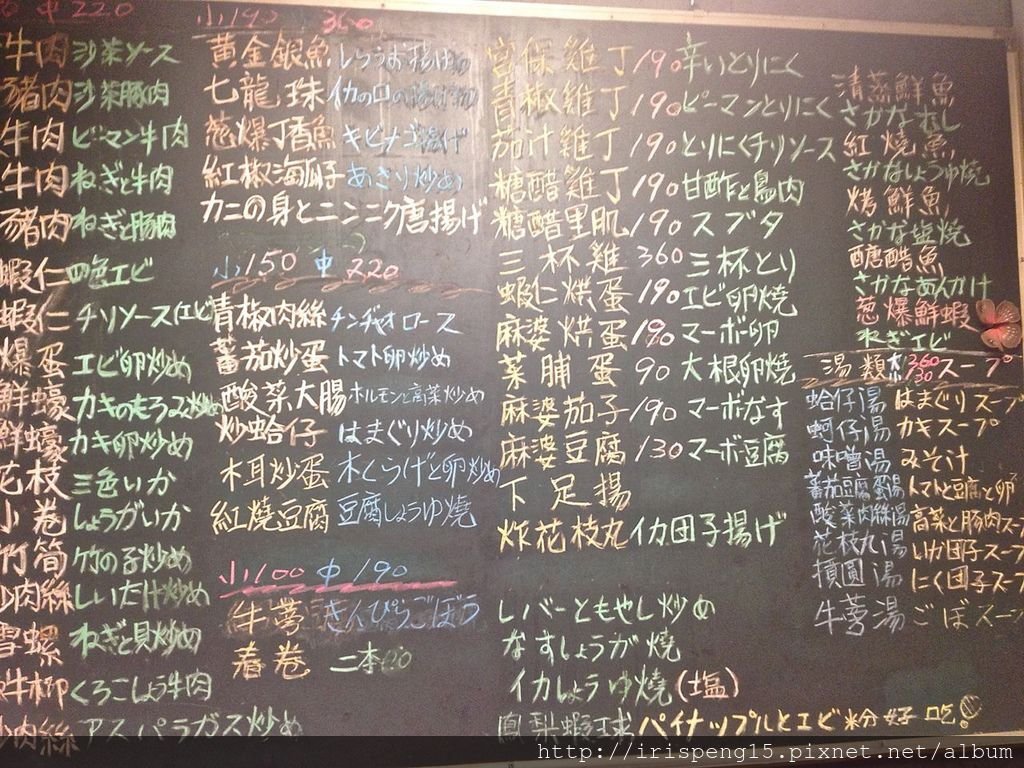 中220
牛肉 沙茶ソース
豬肉 沙茶豚肉
牛肉 ピーマン牛肉
牛肉 ねぎと牛肉
豬肉 ねぎと豚肉
蝦仁 四色エビ
蝦仁 チリソース(エビ
爆蛋 エビ卵炒め
鮮蠔 カキのもろみ炒め
鮮蠔 カキ卵炒め
花枝 三色いか
小卷 しょうがいか
竹筍 竹の子炒め
肉絲 しいたけ炒め
雪螺 ねぎと貝炒め
牛柳 くろこしょう牛肉
肉絲 アスパラガス炒め
小190 360
黃金銀魚 しらうお揚げ物
七龍珠 イカの口の揚げ物
葱爆丁香魚 キビナゴ揚げ
紅椒海瓜子 あさり炒め
カニの身とニンニク唐揚げ
小150 中220
青椒肉絲 チンヂャオロース
蕃茄炒蛋 トマト卵炒め
酸菜大腸 ホルモンと高菜炒め
炒蛤仔 はまぐり炒め
木耳炒蛋 木くらげと卵炒め
紅燒豆腐 豆腐しょうゆ焼
小100 中190
牛蒡 きんぴらごぼう
春卷 二本
宮保雞丁 190 辛いとりにく
青椒雞丁 190 ピーマンとりにく
茄汁雞丁 190 とりにくチリソース
糖醋雞丁 190 甘酢と鳥肉
糖醋里肌 190 スブタ
三杯雞 360 三杯とり
蝦仁烘蛋 190 エビ卵焼
麻婆烘蛋 190 マーボ卵
菜脯蛋 90 大根卵焼
麻婆茄子 190 マーボなす
麻婆豆腐 130 マーボ豆腐
下足揚
炸花枝丸 イカ団子揚げ
レバーともやし炒め
なすしょうが焼
イカしょうゆ焼(塩)
鳳梨蝦球 パイナップルとエビ 粉好吃!
清蒸鮮魚
さかなむし
紅燒魚
さかなしょうゆ焼
烤鮮魚
さかな塩焼
醣醋魚
さかなあんかけ
葱爆鮮蝦
ねぎエビ
湯類 大360 小130 スープ
蛤仔湯 はまぐりスープ
蚵仔湯 カキスープ
味噌湯 みそ汁
蕃茄豆腐蛋湯 トマトと豆腐と卵
酸菜肉絲湯 高菜と豚肉スープ
花枝丸湯 いか団子スープ
摃圓湯 にく団子スープ
牛蒡湯 ごぼスープ
http://irispeng15.pixnet.net/album